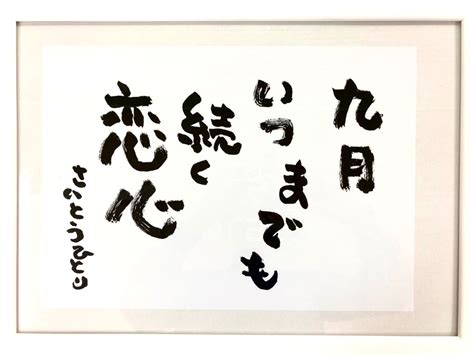 九月
いつまでも
続く
恋心
さいとうひとり